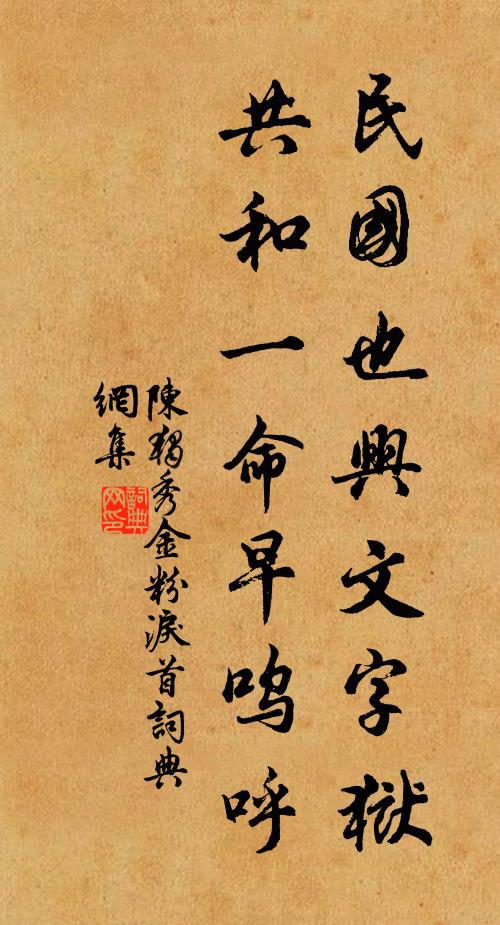 民國也興文字獄
共和一命早嗚呼
陳獨秀金粉淚首詞典
網集
詞典
网印